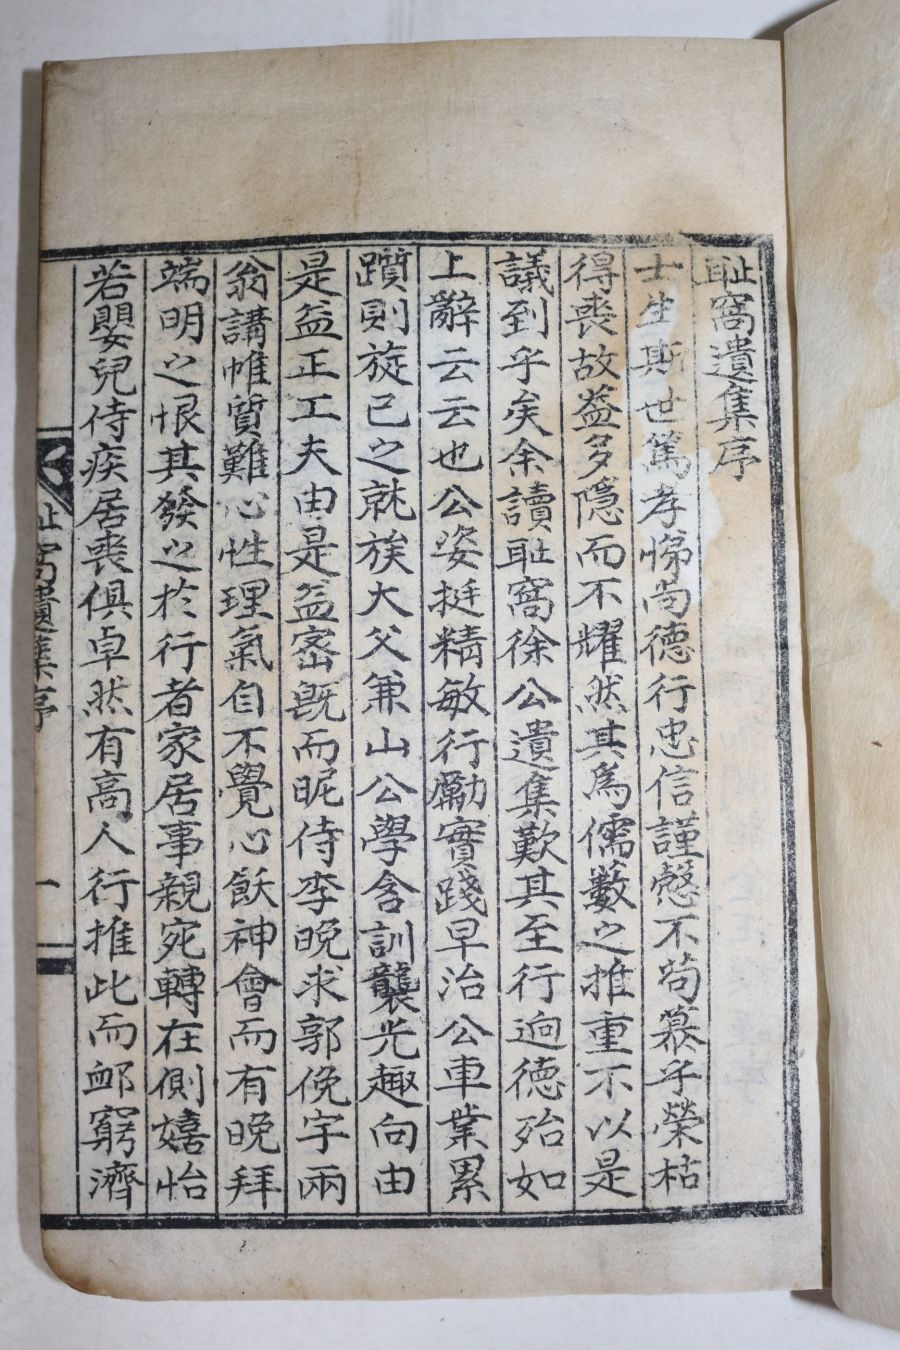 耻窩遺集序
士生斯世篤孝悌尚德行忠信謹慤不苟慕乎榮枯
得喪故葢多隱而不耀然其爲儒藪之推重不以是
議到乎矣余讀耻窩徐公遺集歎其至行逈德殆如
上辭云云也公姿挺精敏行勵實踐早治公車業累
躓則旋已之就族大父兼山公學含訓襲光趣向由
是益正工夫由是益密旣而昵侍李晚求郭俛宇兩
翁講帷質難心性理氣自不覺心飫神會而有晚拜
端明之恨其發之於行者家居事親宛轉在側嬉怡
若嬰兒侍疾居喪俱卓然有高人行推此而衈窮濟
耻窩遺集序
一